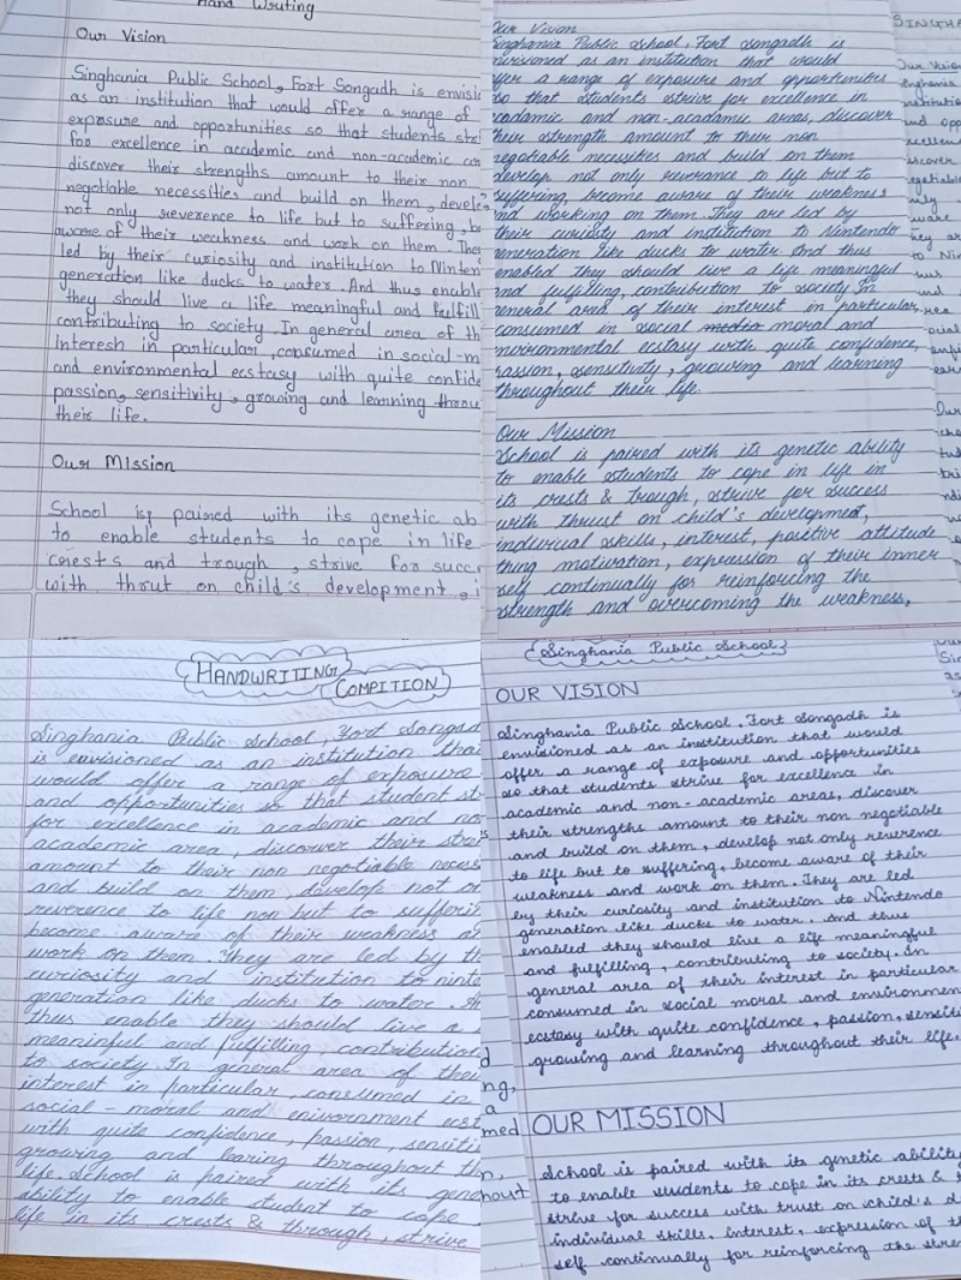 Hand Writing
Our Vision
Singhania Public School, Fort Songadh is envisi
as an institution that would offer a range of
exposure and opportunities so that students stri
for excellence in academic and non-academic are
discover their strengths amount to their non
negotiable necessities and build on them, develop
not only reverence to life but to suffering, be
aware of their weakness and work on them. They
led by their curiosity and institution to Ninten
generation like ducks to water. And thus enable
they should live a life meaningful and fulfill
contributing to society. In general area of th
interesh in particular, consumed in social-m
and environmental ecstasy with quite confide
passion, sensitivity, growing and learning throu
their life.
Our Mission
School is paired with its genetic ab
to enable students to cope in life
crests and trough, strive for succe
with thrut on child's development, i
Our Vision
Singhania Public School, Fort Songadh is
envisioned as an institution that would
offer a range of exposure and opportunities
so that students strive for excellence in
acadamic and non-acadamic areas, discover
their strength amount to their non
negotiable necessites and build on them
develop not only reverance to life but to
suffering, become aware of their weakness
and working on them. They are led by
their curiosty and institution to Nintendo
generation like ducks to water And thus
enabled they should live a life meaningful
and fulfilling, contribution to society In
general area of their interest in particular,
consumed in social media moral and
environmental ecstasy with quite confidence,
passion, sensitivity, growing and learning
throughout their life.
Our Mission
School is paired with its genetic ability
to enable students to cope in life in
its crests & trough, strive for success
with thrust on child's development,
indivirual skills, interest, positive attitude
thing motivation, expression of their inner
self continually for reinforcing the
strength and overcoming the weakness,
HANDWRITING
COMPITION
Singhania Public School, Fort Songad
is envisioned as an institution that
would offer a range of exposure
and opportunities so that student st
for excellence in academic and no
academic area, discover their stren
amount to their non negotiable necess
and build on them, develop not on
reverence to life non but to sufferin
become aware of their weakness an
work on them. They are led by th
curiosity and institution to ninte
generation like ducks to water. An
thus enable they should live a
meaninful and fulfilling, contribution
to society In general area of thei
interest in particular, consumed in
social-moral and enivornment ecst
with quite confidence, passion, sensiti
growing and learing throughout the
life. School is paired with its gene
ability to enable student to cope
life in its crests & through, strive
Singhania Public School
OUR VISION
Singhania Public School. Fort Songadh is
envisioned as an institution that would
offer a range of exposure and opportunities
so that students strive for excellence in
academic and non-academic areas, discover
their strengths amount to their non negotiable
and build on them, develop not only reverence
to life but to suffering, become aware of their
weakness and work on them. They are led
by their curiosity and institution to Nintendo
generation like ducks to water. And thus
enabled they should live a life meaningful
and fulfilling, contributing to society. In
general area of their interest in particular
consumed in social moral and environmen
ecstasy with quite confidence, passion, sensiti
growing and learning throughout their life.
OUR MISSION
School is paired with its genetic ability
to enable students to cope in its crests &
strive for success with trust on child's d
individual skills, interest, expression of th
self continually for reinforcing the stre